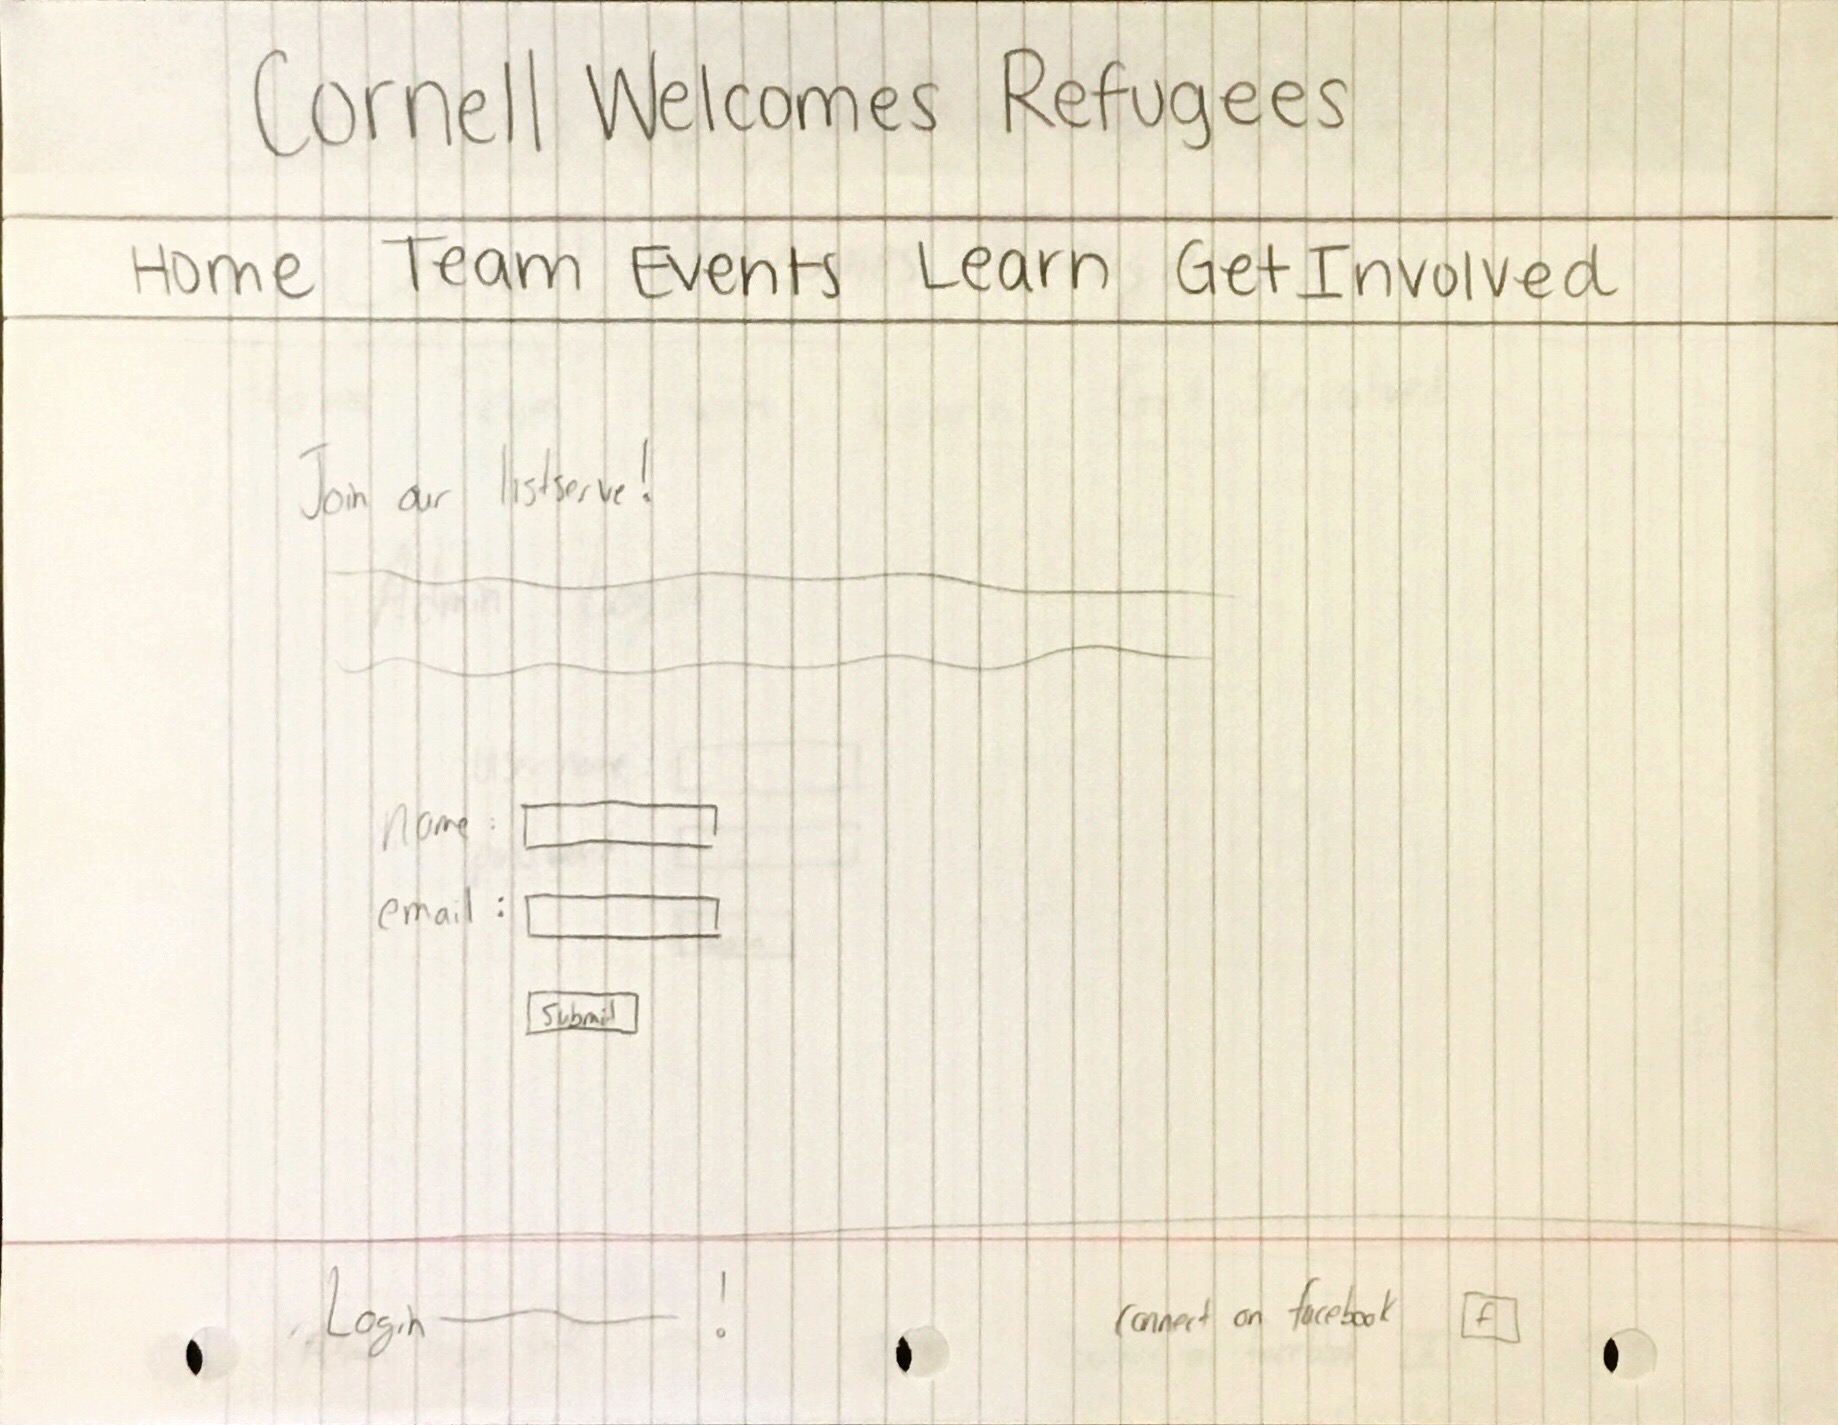 Cornell Welcomes Refugees
Home Team Events Learn Get Involved
Join our listserve!
name :
email :
Submit
Login !
connect on facebook f